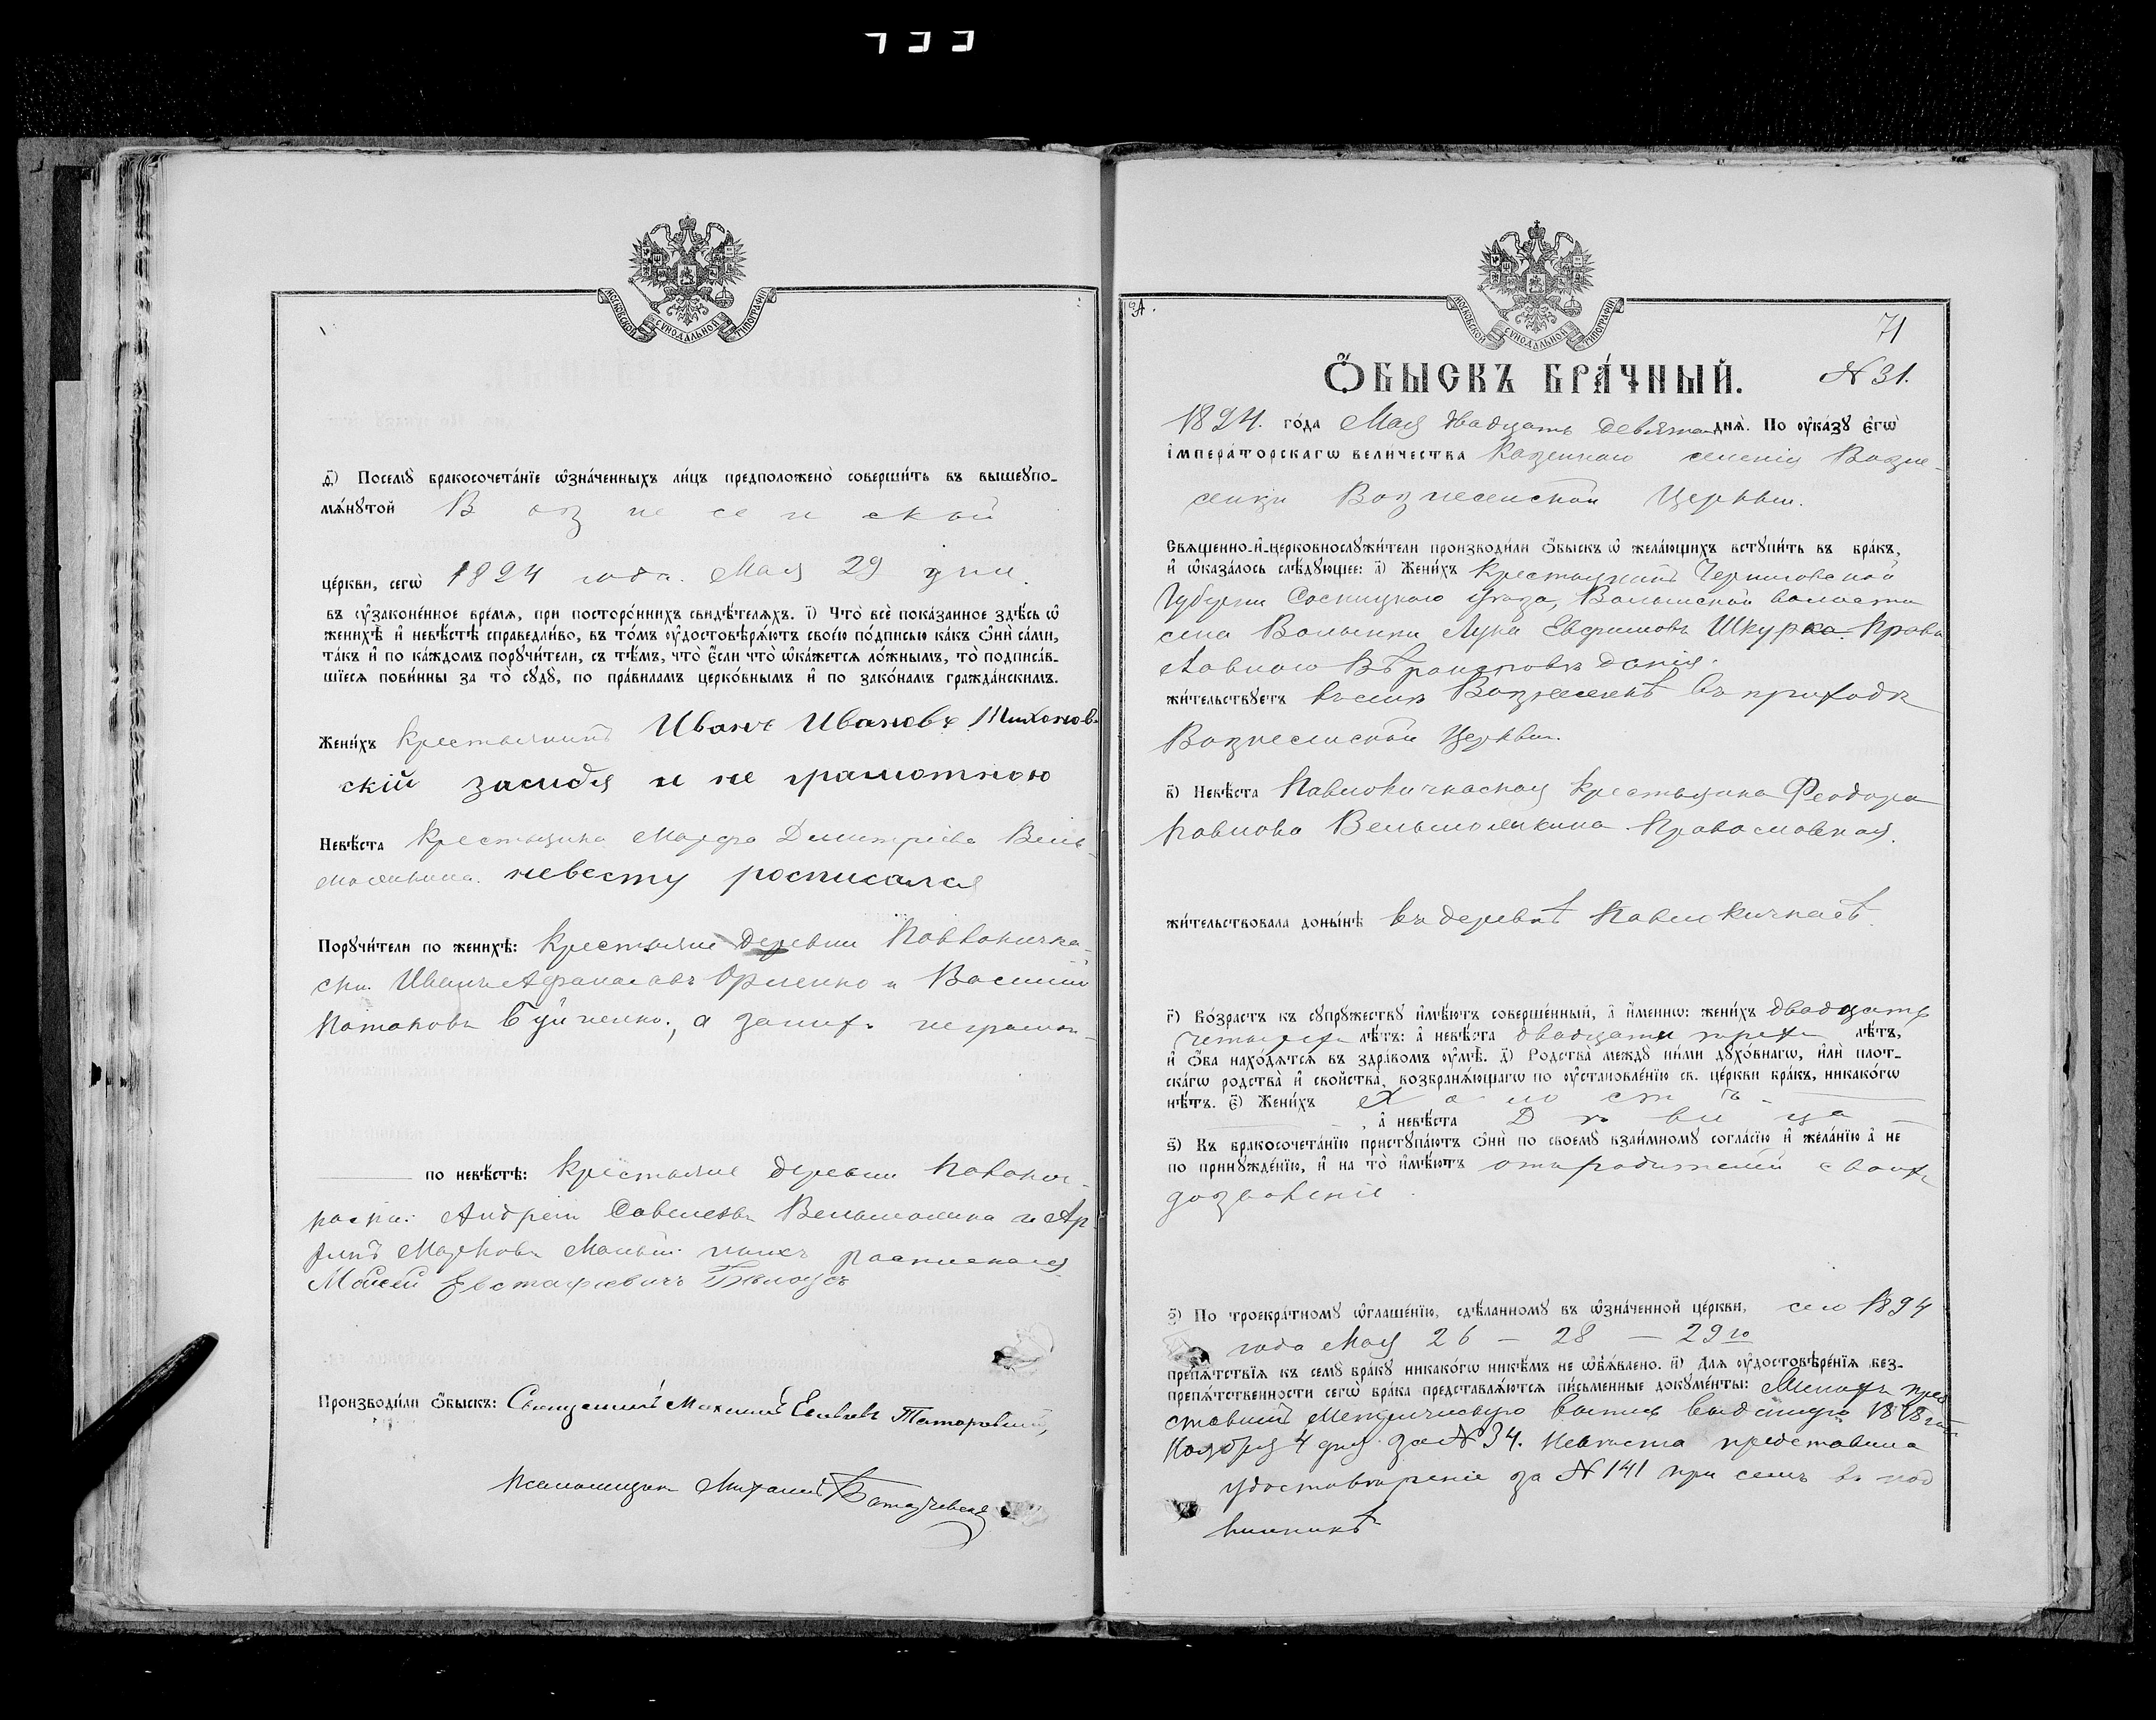 733
МОСКОВСКОЙ СѴНОДАЛЬНОЙ ТИПОГРАФІИ
ѳ҃) Посемꙋ̀ бракосочета́нїе ѡ҆зна́ченныхъ ли́цъ предположено̀ соверши́ть въ вышеꙋпо-
мѧ́нꙋтой Вознесенской
це́ркви, сегѡ̀ 1894 года. Мая 29 дня.
въ ᲂу҆зако́ненное вре́мѧ, при посторо́ннихъ свидѣ́телѧхъ. і҃) Что̀ всѐ пока́занное здѣ́сь ѡ҆
женихѣ̀ и҆ невѣ́стѣ справедли́во, въ то́мъ ᲂу҆достовѣрѧ́ютъ свое́ю по́дписью ка́къ ѻ҆нѝ са́ми,
та́къ и҆ по ка́ждомъ порꙋчи́тели, съ тѣ́мъ, что̀ є҆́сли что̀ ѡ҆ка́жетсѧ ло́жнымъ, то̀ подписа́в-
шїесѧ пови́нны за то̀ сꙋдꙋ̀, по пра́виламъ церко́внымъ и҆ по зако́намъ гражда́нскимъ.
Жени́хъ Крестьянинъ Иванъ Ивановъ Тихонов-
скій засибя и не грамотною
Невѣ́ста Крестьянка Марфа Димитріева Вель-
молкина. невесту росписался
Порꙋчи́тели по женихѣ̀: Крестьяне деревни Павлокичка-
ски. Иванъ Афанасовъ Орленко и Василій
Потаповъ Буйненко, а за нихъ неграмот-
по невѣ́стѣ: Крестьяне деревни Павлокич-
каски: Андрей Савельевъ Вельмолкина и Ар-
Марковъ расписался
Мойсей Евстафіевичъ Билоусъ
Производи́ли ѻ҆́быскъ: Священникъ Татаровскій,
Псаломщикъ Михаилъ
А҃.
71
МОСКОВСКОЙ СѴНОДАЛЬНОЙ ТИПОГРАФІИ
Ѻ҆́БЫСКЪ БРА́ЧНЫЙ. N 31.
1894. го́да Мая двадцать девятаго днѧ̀. По ᲂу҆ка́зꙋ є҆гѡ̀
і҆мпера́торскагѡ вели́чества Казеннаго селенія Возне-
сенки Вознесенской Церкви.
Свѧще́нно-и҆-церковнослꙋжи́тели производи́ли ѻ҆́быскъ ѡ҆ жела́ющихъ встꙋпи́ть въ бра́къ,
и҆ ѡ҆каза́лось слѣ́дꙋющее: а҃) Жени́хъ Крестьянинъ Черниговской
Губерніи Сосницкаго уѣзда, Волынской волости
села Волынки Лука Евфимовъ Шкурко. Право
славного Вѣроисповѣданія.
жи́тельствꙋетъ въ селѣ Вознесенкѣ въ приходѣ
Вознесенской Церкви.
в҃) Невѣ́ста Павлокичкаская Крестьянка Феодора
Павлова Вельмолкина Православная.
жи́тельствовала доны́нѣ въ деревнѣ Павлокичкасѣ.
г҃) Во́зрастъ къ сꙋпрꙋ́жествꙋ и҆мѣ́ютъ соверше́нный, а҆ и҆́меннѡ: жени́хъ двадцать
четырехъ лѣ́тъ: а҆ невѣ́ста двадцати трехъ лѣ́тъ,
и҆ ѻ҆́ба нахо́дѧтсѧ въ здра́вомъ ᲂу҆мѣ̀. д҃) Родства̀ междꙋ̀ ни́ми дꙋхо́внагѡ, и҆лѝ плот-
ска́гѡ родства̀ и҆ свойства̀, возбранѧ́ющагѡ по ᲂу҆становле́нїю св. це́ркви бра́къ, никако́гѡ
нѣ́тъ. є҃) Жени́хъ Холостъ
, а҆ невѣ́ста Дѣвица
ѕ҃) Къ бракосочета́нїю пристꙋпа́ютъ ѻ҆нѝ по своемꙋ̀ взаи́мномꙋ согла́сїю и҆ жела́нїю а҆ не
по принꙋжде́нїю, и҆ на то̀ и҆мѣ́ютъ отъ родителей своихъ
дозволеніе.
з҃) По троекра́тномꙋ ѡ҆глаше́нїю, сдѣ́ланномꙋ въ ѡ҆зна́ченной це́ркви, сего 1894
года Мая 26 — 28 — 29го
препѧ́тствїѧ къ семꙋ̀ бра́кꙋ никако́гѡ никѣ́мъ не ѡ҆б̾ѧ́влено. и҃) Длѧ ᲂу҆достовѣре́нїѧ без-
препѧ́тственности сегѡ̀ бра́ка представлѧ́ютсѧ пи́сьменные докꙋме́нты: Женихъ пред
ставилъ Метрическую выпись выданную
Ноября 4 дня за N 34. Невѣста представила
удостовѣреніе за N 141 при семъ въ под
линникѣ